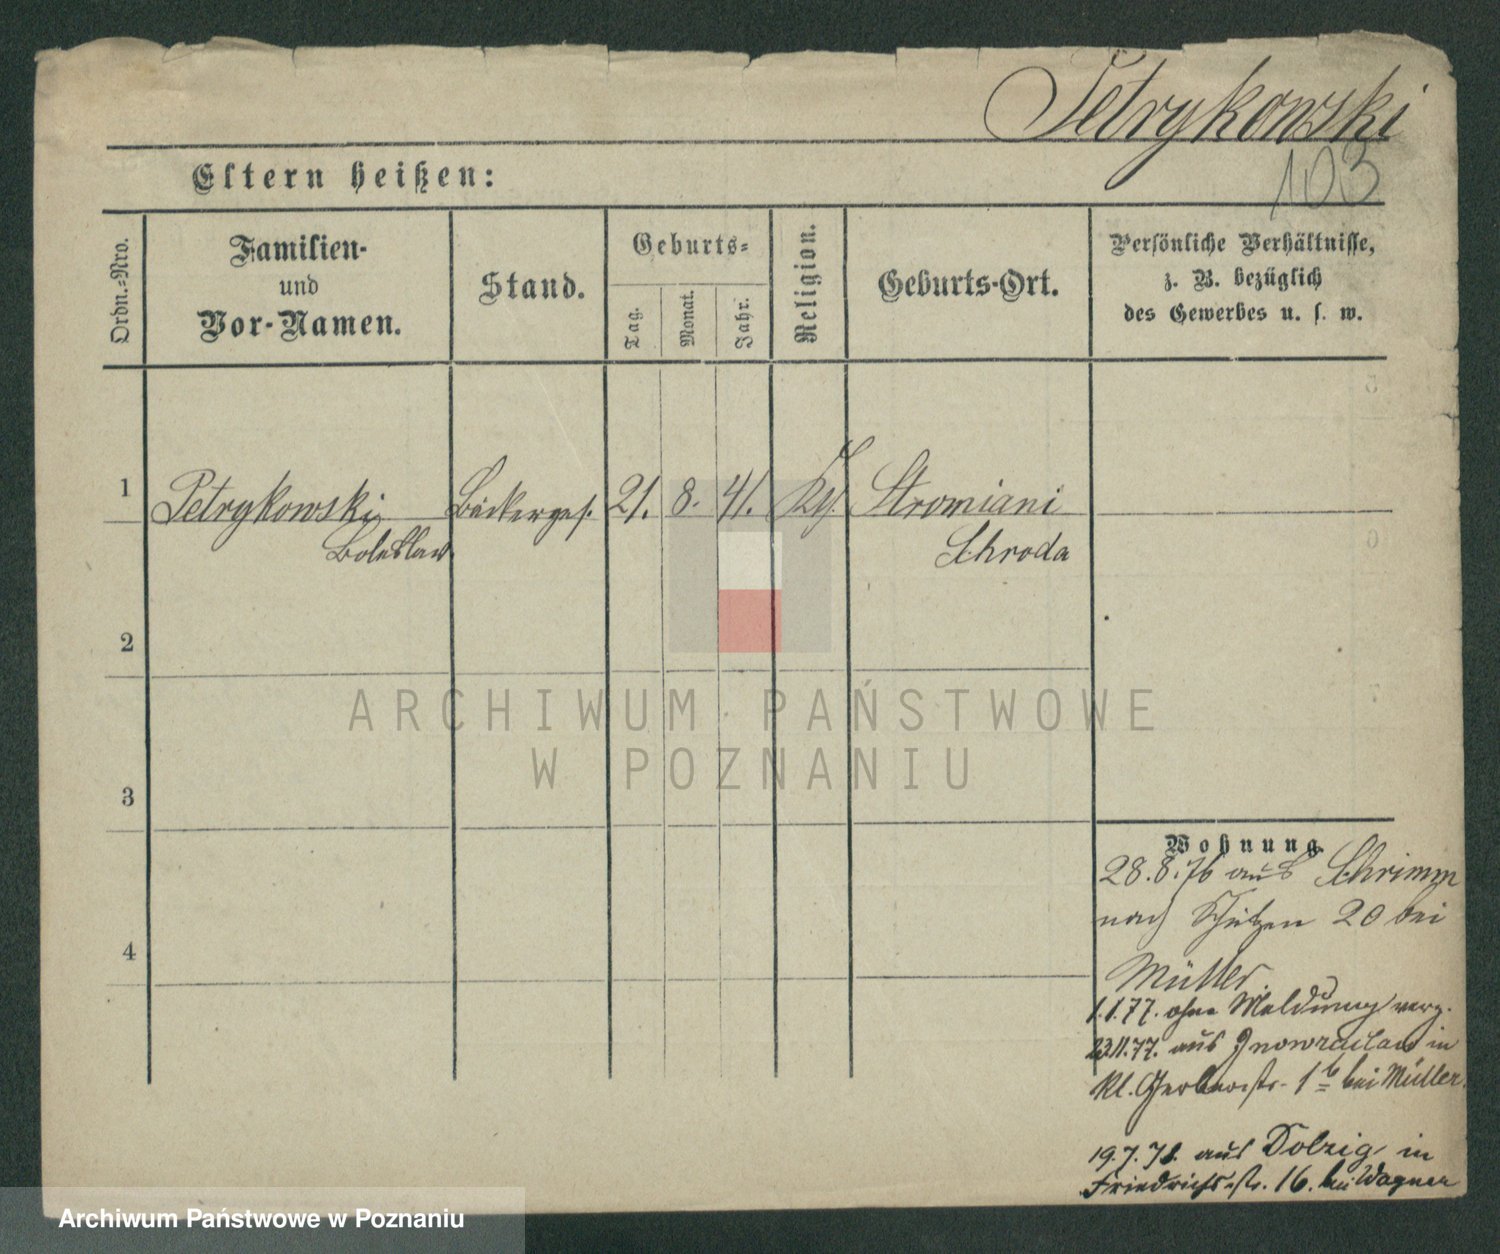 Petrykowski
103
Eltern heißen:
Ordn.-Nro.
Familien-
und
Vor-Namen.
Stand.
Geburts-
Tag.
Monat.
Jahr.
Religion.
Geburts-Ort.
Persönliche Verhältnisse,
z. B. bezüglich
des Gewerbes u. s. w.
1 Petrykowski Bäckerges. 21. 8. 41. Stromiani
Boleslaw Schroda
2
3
4
Wohnung
28.8.76 aus Schrimm
nach Schützen 20 bei
Müller.
1.1.77. ohne Meldung verz.
23.11.77. aus Inowraclaw in
Kl. Gerberstr. 1b bei Müller.
19.7.78. aus Dolzig in
Friedrichsstr. 16. bei Wagner
ARCHIWUM PAŃSTWOWE
W POZNANIU
Archiwum Państwowe w Poznaniu